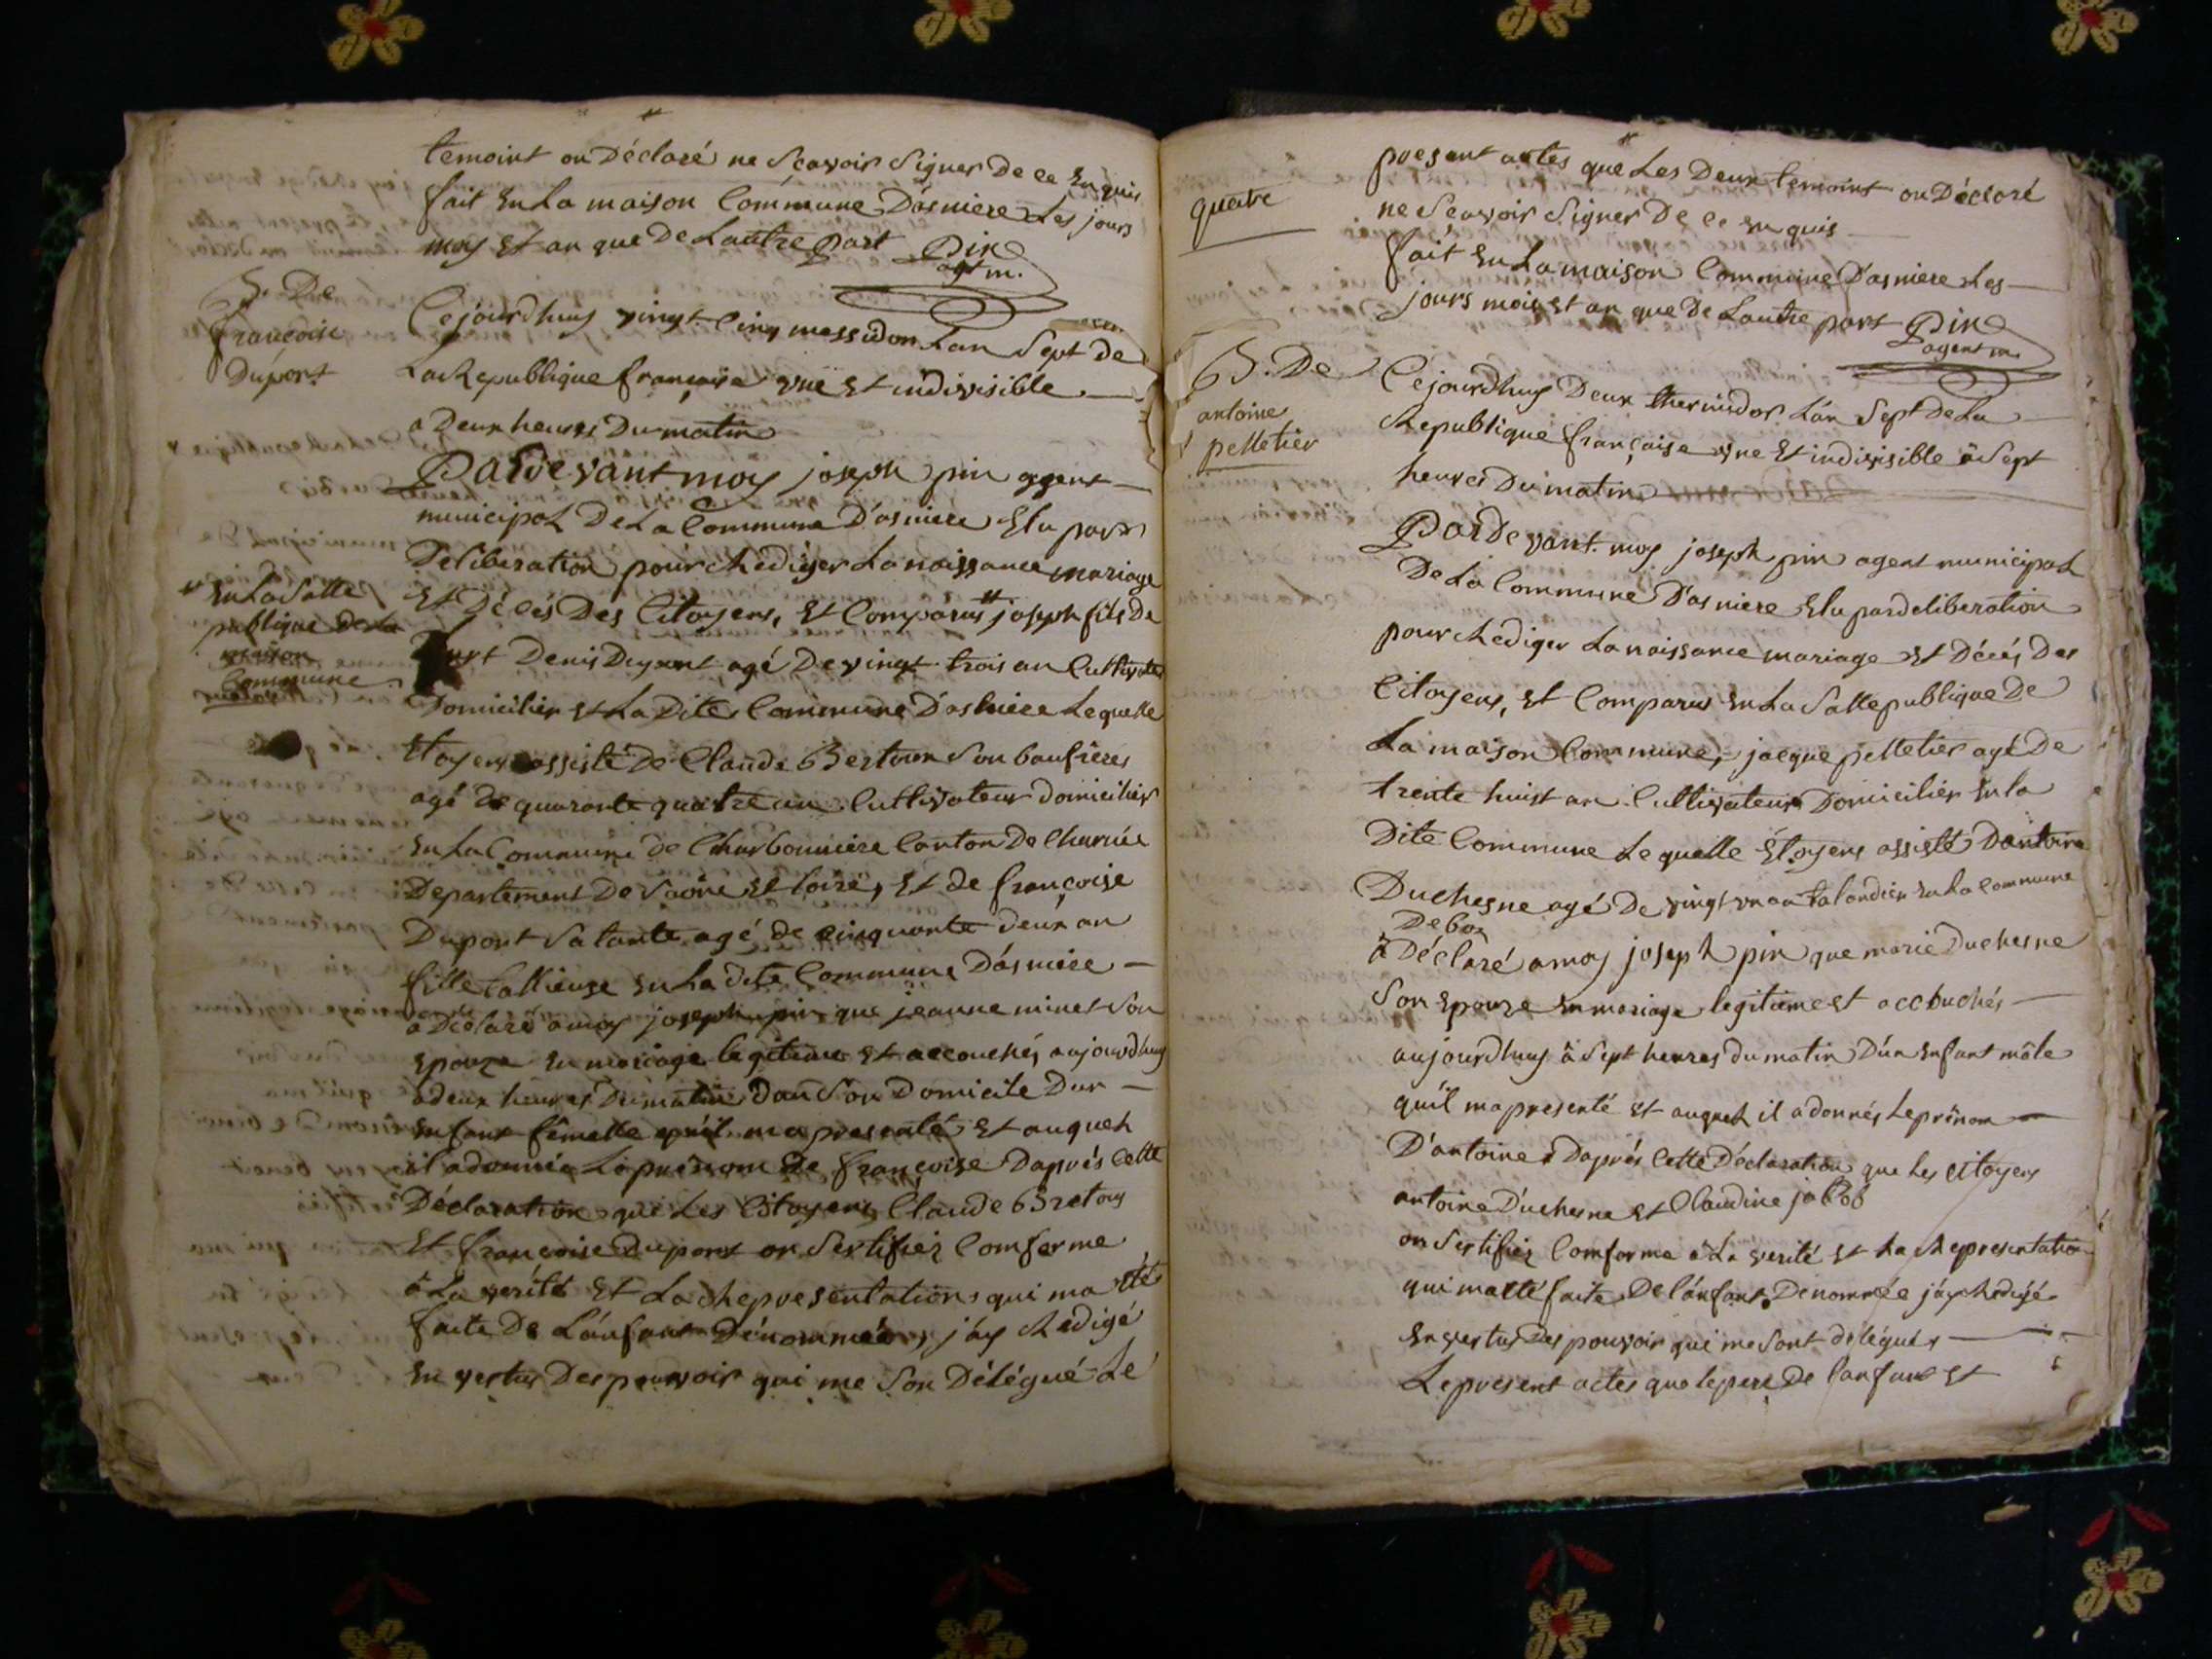 temoint on Déclaré ne Scavoir Signer De ce Enquis
fait En La maison Commune D'asniere Les jours
moy Et an que De Lautre part Pin
agt m.
B. De
françoise
Dupont
Cejourdhuy vingt Cinq messidor Lan Sept de
La Republique françoise vne Et indivisible
a Deux heures Du matin
Pardevant moy joseph pin agent
municipal De La Commune D'asniere Elu par
Deliberation pour Rediger La naissance mariage
Et Décés Des Citoyens, Et Comparus joseph fils De
En La Salle
publique De La
maison
Commune
Denis Dupont agé De vingt trois an Cultivateur
Domicilier Et La Dite Commune D'asniere Lequelle
Etoyens assisté De Claude Bertoin Son baufreres
agé De quarante quatre an Cultivateur domicilier
En La Commune de Charbonniere Canton De
Departement De Saone Et loire, Et de françoise
Dupont Sa tante agé de cinquante deux an
fille tallieuse En La dite Commune D'asniere
a Déclaré a moy joseph pin que jeanne minet Son
Epouze En mariage legitime Et accouchés aujourdhuy
a deux heures Du matin Dan Son Domicile Dun
Enfant fémelle qu'il ma presenté Et auquel
il a donnée Le prénom De françoise Daprés Cette
Déclaration que Les Citoyens Claude Bretoy
Et françoise Dupont on Sertifiéz Comforme
à La verité Et La Representation qui ma été
faite De Lanfant Dénommée, jáy Redigé
En vertus Des pouvoir qui me Son Délégué Le
quatre
present actes que Les Deux temoint on Déclaré
ne Scavoir Signer De ce Enquis
fait En La maison Commune D'asniere Les
jours mois Et an que De Lautre part Pin
agent m.
B. De
antoine
pelletier
Cejourdhuy Deux thermidor Lan Sept De La
Republique française vne Et indivisible à Sept
heures Du matin
Pardevant moy joseph pin agent municipal
De La Commune D'asniere Elu par deliberation
pour Rediger La naissance mariage Et Décéz Des
Citoyens, Et Comparus En La Salle publique De
La maison Commune, jacque pelletier agé De
trente huist an Cultivateur Domicilier En la
Dite Commune Lequelle Etoyens assisté Dantoine
Duchesne agé De vingt vn an talondier En La Commune
De boz
à Déclaré a moy joseph pin que marie Duchesne
Son Epouze En mariage legitime Et accouchés
aujourdhuy à Sept heures du matin D'un Enfant mâle
qu'il ma presenté Et auquel il a donnés Le prénom
D'antoine Daprés Cette Déclaration que Les Citoyens
antoine Duchesne Et Claudine jacob
on Sertifiéz Comforme à La verité Et La Representation
qui ma été faite De Lanfant Denommée jáy Redigé
En vertus Des pouvoir qui me Sont délégués
Le present actes que le pere De Lanfant Et